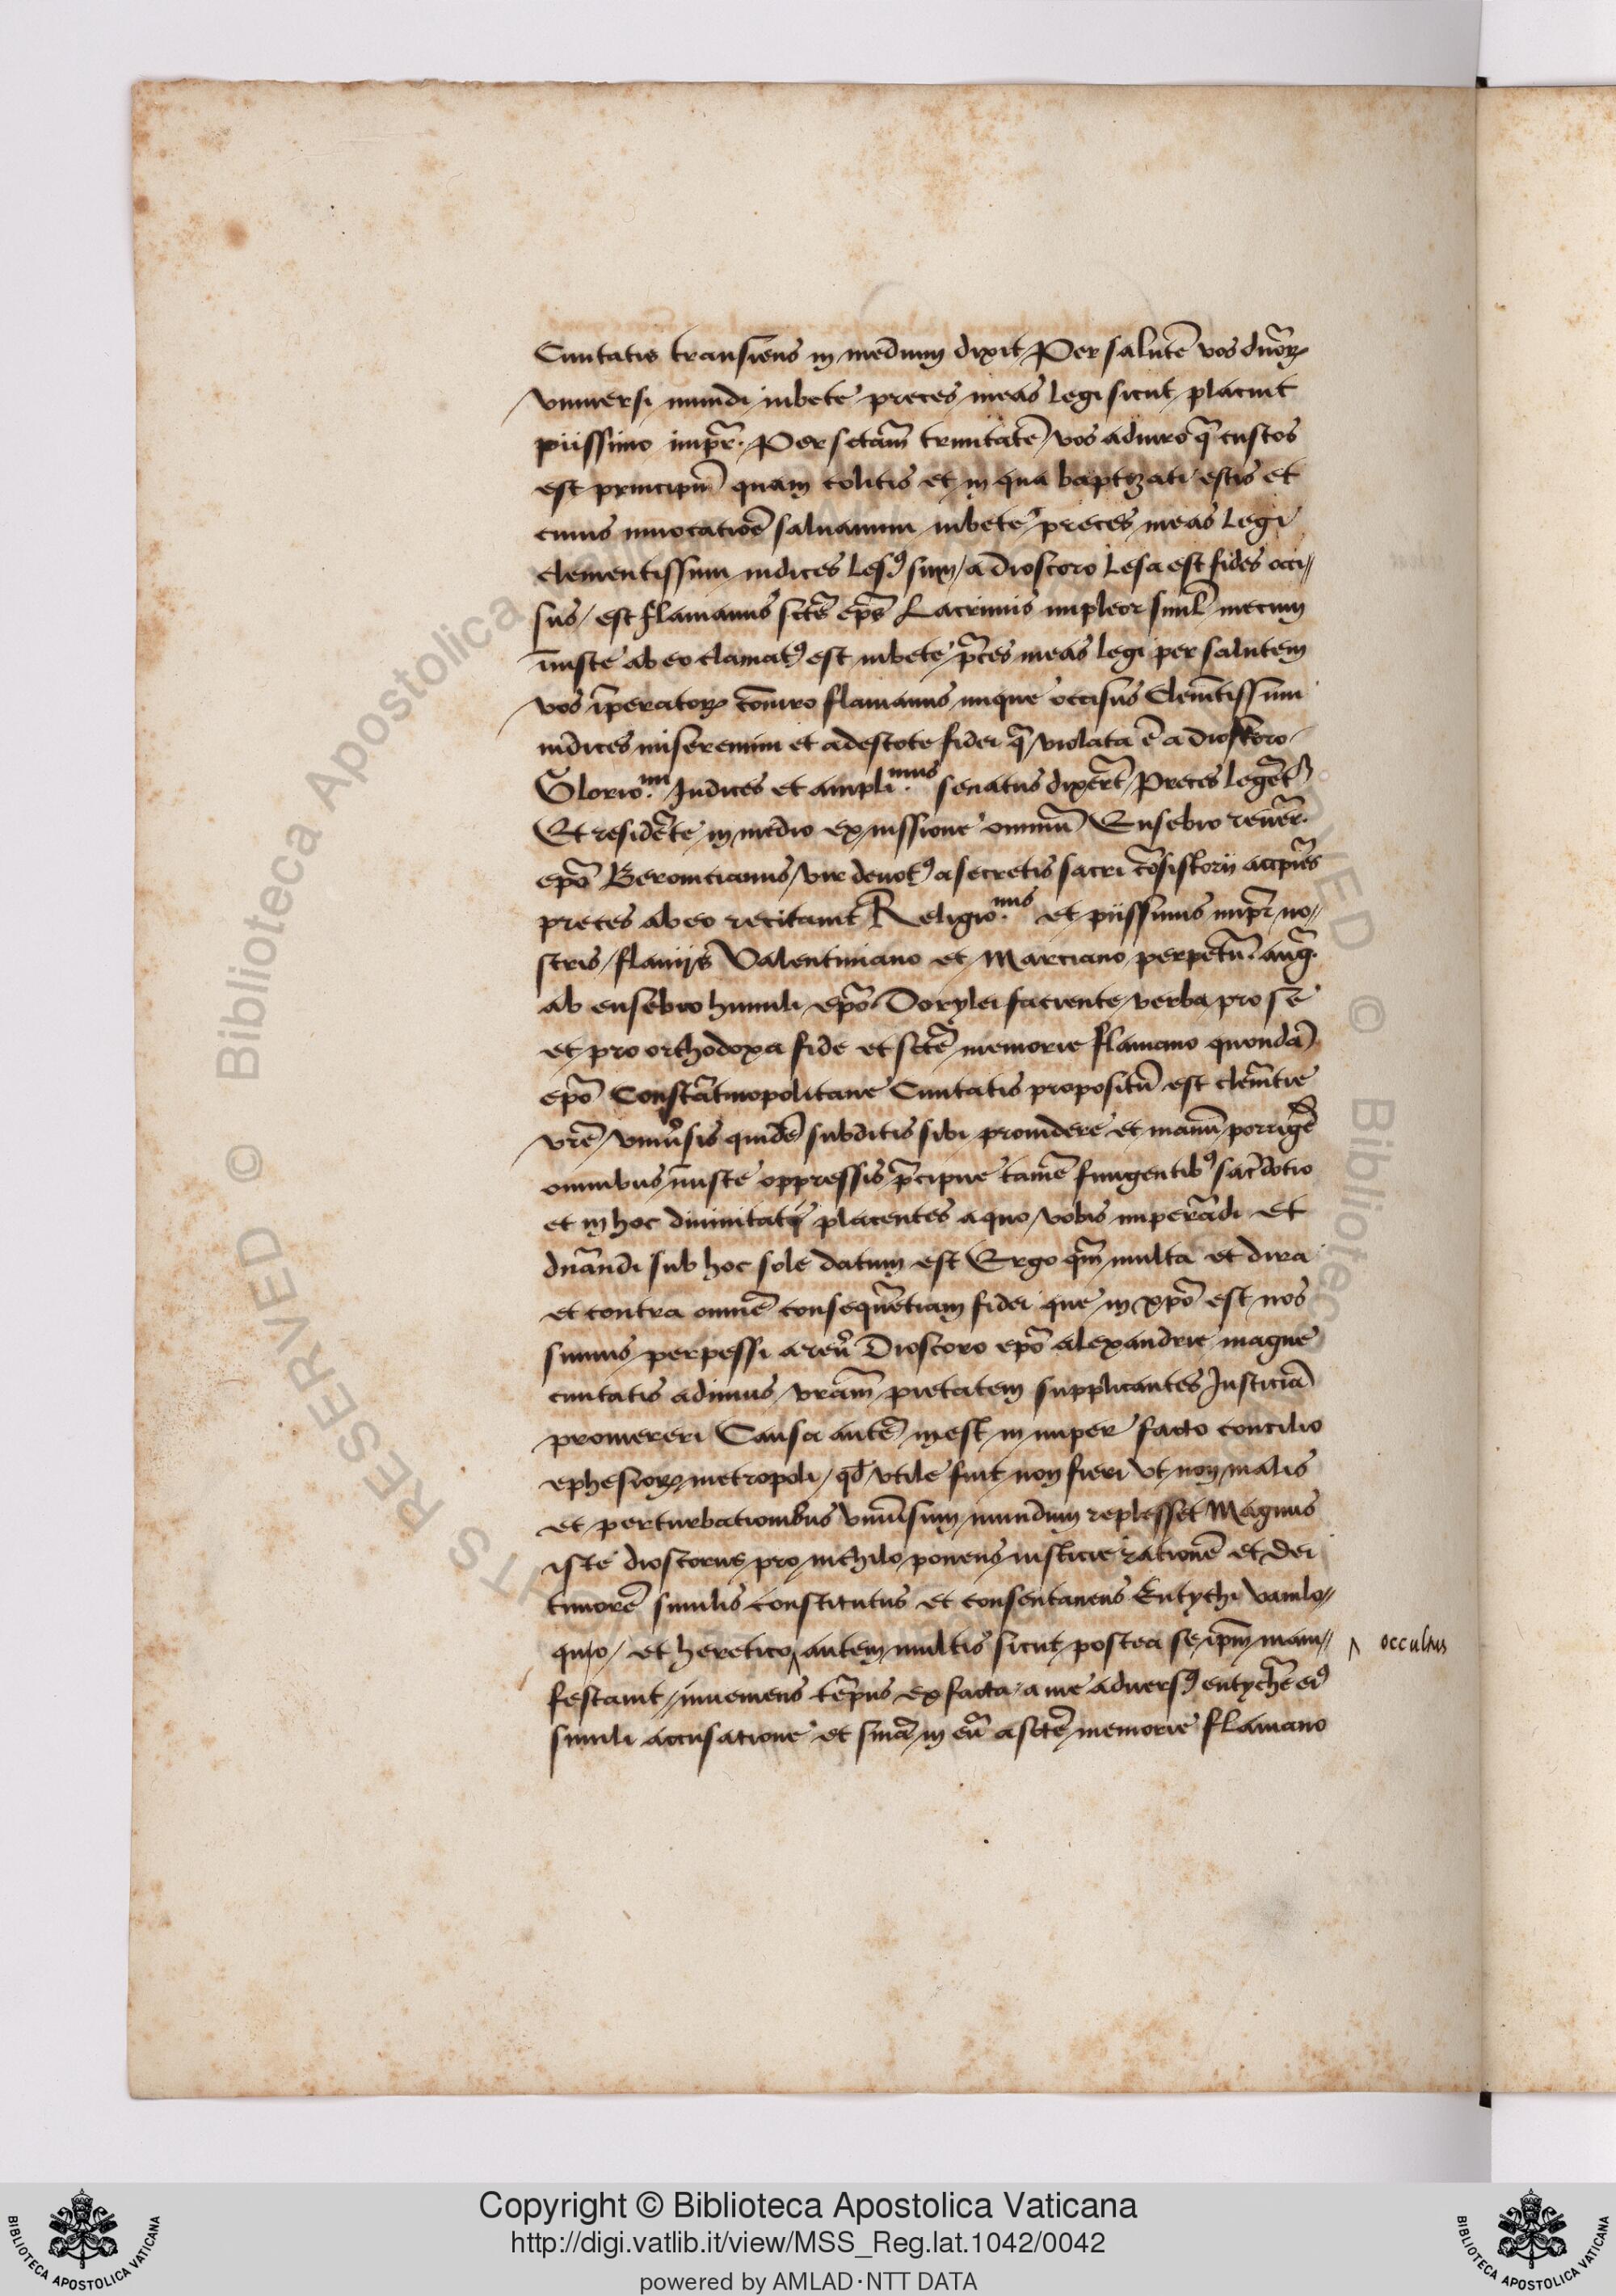 Ciuitatis transiens in medium dixit Per salutē vos dn̄oꝝ
vniuersi mundi iubete preces meas legi sicut placuit
piissimo imꝑr̄. Per sctām trinitatē vos adiuro q̄ custos
est principiū quam colitis et in qua baptizati estis et
cuius inuocatiōe saluamini iubete preces meas legi
clementissimi iudices lesꝰ sum a dioscoro lesa est fides occi//
sus est flauianus sctē ep̄s Lacrimis impleor simul mecum
iniuste ab eo clamatꝰ est iubete p̄ces meas legi per salutem
vos īperatoꝝ cōiuro flauianus inique occisus clemētissimi
iudices miseremini et adestote fidei q̄ violata ē a dioscoro
Glorio.mi Iudices et ampli.mus senatus dixert̄ Preces legēt᷑
Et residēte in medio ex iussione omniū Eusebio reuer.
ep̄o Beronicianus vir deuotꝰ a secretis sacri cōsistorii accip̄es
preces ab eo recitauit Religio.mis et piissimis imꝑr̄ no//
stris flauijs Valentiniano et Marciano perpetu. aug.
ab eusebio humili ep̄o Dorylei faciente verba pro se
et pro orthodoxa fide et sctē memorie flauiano quondā
ep̄o Constātinopolitane Ciuitatis propositū est clemētie
vr̄e vniuersis quidē subditis sibi prouidere et manū porrigē
omnibus iniuste oppressis p̄cipue tamē fungentibꝰ sac̄dotio
et in hoc diuinitati placentes a quo vobis imperādi et
dn̄andi sub hoc sole datum est Ergo qm̄ multa et dira
et contra omnē consequētiam fidei que in xp̄o est nos
sumus perpessi a reū Dioscoro ep̄o alexandrie magne
ciuitatis adimus vrām pietatem supplicantes Iusticiā
promereri Causa autē inest in nuper facto concilio
ephesioꝝ metropoli qd̄ vtile fuit non fieri vt non malis
et perturbationibus vniūsum mundum replesset Magnus
iste dioscorus pro nichilo ponens iusticie rationē et dei
timorē similis constitutus et consentaneus Eutychi vanilo//
quio et heretico ʌ autem multis sicut postea se ip̄m mani//
ʌ occultus
festauit inueniens tēpus ex facta a me aduersꝰ eutychē eiꝰ
simili accusatione et sn̄ia in eū a sctē memorie flauiano
Copyright © Biblioteca Apostolica Vaticana
http://digi.vatlib.it/view/MSS_Reg.lat.1042/0042
powered by AMLAD·NTT DATA
BIBLIOTECA APOSTOLICA VATICANA
BIBLIOTECA APOSTOLICA VATICANA